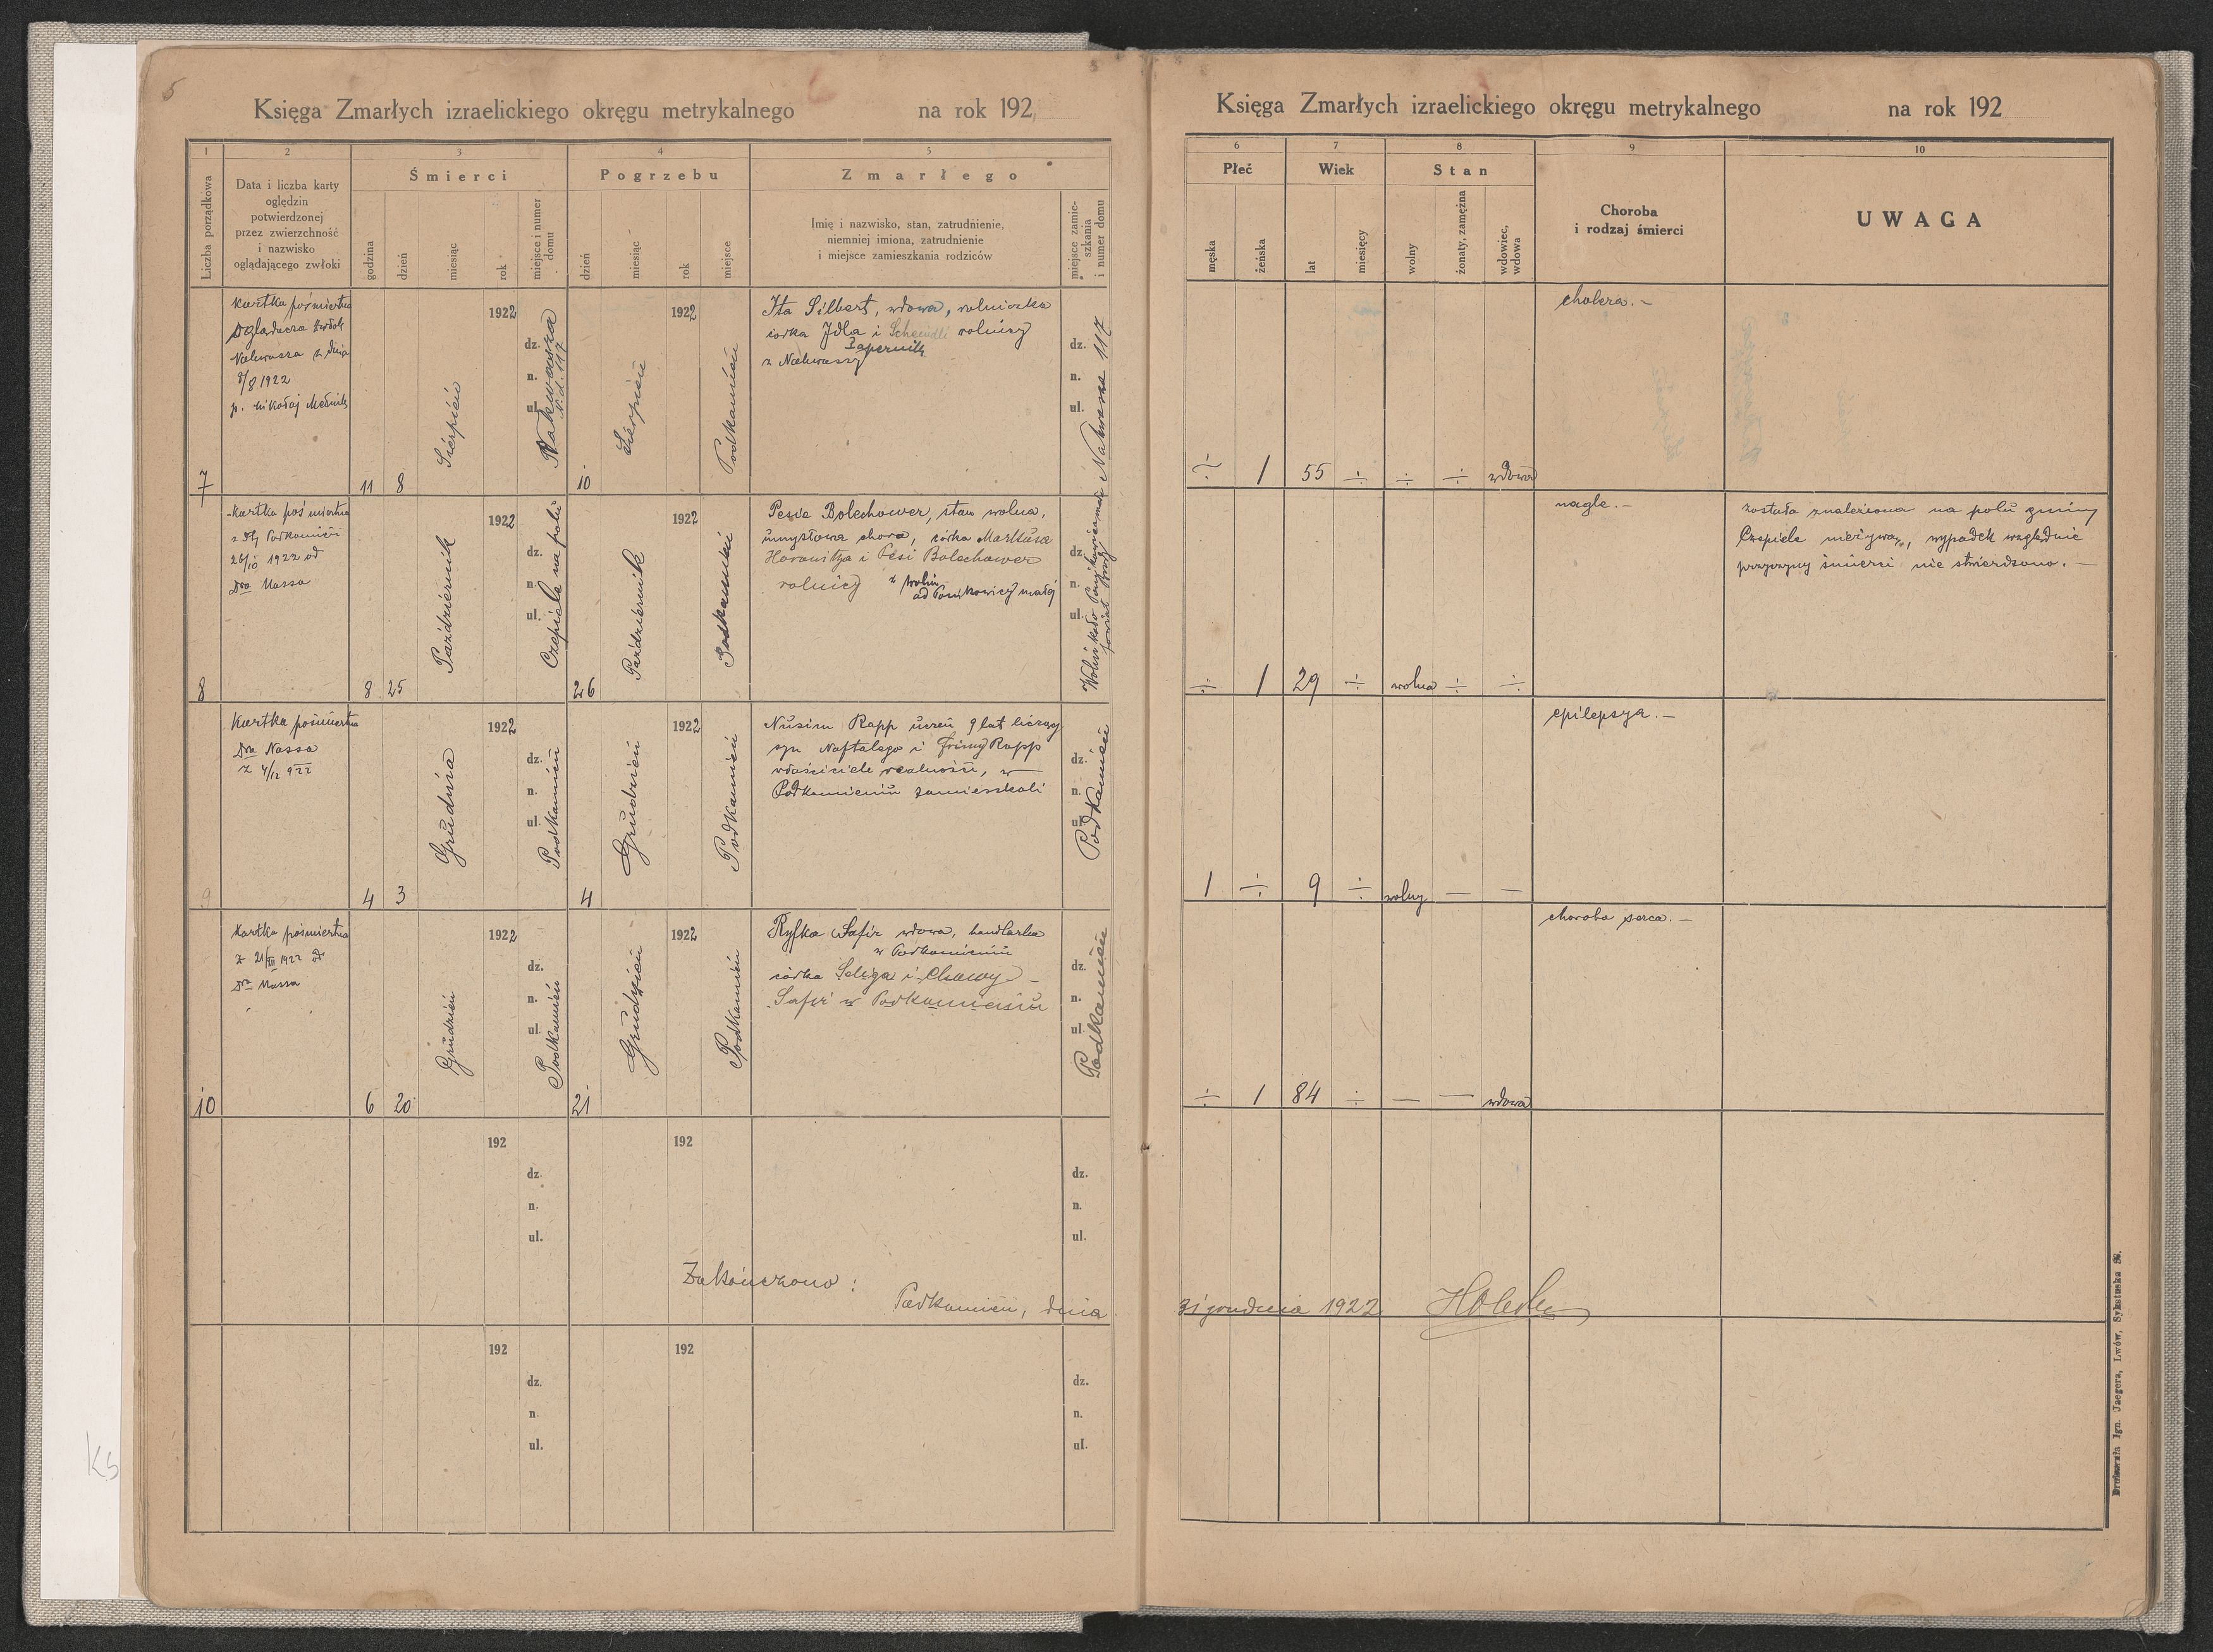 5
Księga Zmarłych izraelickiego okręgu metrykalnego na rok 192
1 2 3 4 5
Liczba porządkowa
Data i liczba karty
oględzin
potwierdzonej
przez zwierzchność
i nazwisko
oglądającego zwłoki
Śmierci
godzina
dzień
miesiąc
rok
miejsce i numer
domu
Pogrzebu
dzień
miesiąc
rok
miejsce
Zmarłego
Imię i nazwisko, stan, zatrudnienie,
niemniej imiona, zatrudnienie
i miejsce zamieszkania rodziców
miejsce zamie-
szkania
i numer domu
7
Kartka pośmiertna
Oglądacza zwłok
Nakwasza z dnia
8/8 1922
p. Mikołaj
11
8
Sierpień
1922
dz.
n.
ul.
Nakwasza
N.d. 117
10
Sierpień
1922
Podkamień
Ita Silbert, wdowa, rolniczka
córka Jdla i Scheindli rolnicy
z Nakwaszy
dz.
n.
ul.
Nakwasza 117
8
Kartka pośmiertna
Podkamień
26/10 1922 od
Dra Nassa
8
25
Październik
1922
dz.
n.
ul.
Czepiele na polu
26
Październik
1922
Podkamień
Pesie Bolechower, stan wolna,
umysłowa chora, córka Markusa
Horowitza i Pesi Bolechower
rolnicy z
od Ponikowicy małej
dz.
n.
ul.
Wolin koło Ponikowica mała
powiat Brody
9
Kartka pośmiertna
Dra Nassa
z 4/12 922
4
3
Grudnia
1922
dz.
n.
ul.
Podkamień
4
Grudzień
1922
Podkamień
Nusim Rapp uczeń 9 lat liczący
syn Naftalego i Frimy Rapp
właściciele realności, w
Podkamieniu zamieszkali
dz.
n.
ul.
Podkamień
10
Kartka pośmiertna
z 21/XII 1922 od
Dra Nassa
6
20
Grudzień
1922
dz.
n.
ul.
Podkamień
21
Grudzień
1922
Podkamień
Ryfka Safir wdowa, handlarka
w Podkamieniu
córka Seliga i Chawy
Safir w Podkamieniu
dz.
n.
ul.
Podkamień
192
dz.
n.
ul.
192
dz.
n.
ul.
Zakończono:
Podkamień, dnia
192
dz.
n.
ul.
192
dz.
n.
ul.
Księga Zmarłych izraelickiego okręgu metrykalnego na rok 192
6 7 8 9 10
Płeć
męska
żeńska
Wiek
lat
miesięcy
Stan
wolny
żonaty, zamężna
wdowiec,
wdowa
Choroba
i rodzaj śmierci
UWAGA
÷ 1 55 ÷ ÷ ÷ wdowa
cholera. -
÷ 1 29 ÷ wolna ÷ ÷
nagle. -
została znaleziona na polu gminy
Czepiele nieżywą, wypadek względnie
przyczyny śmierci nie stwierdzono. -
1 ÷ 9 ÷ wolny — —
epilepsya. -
÷ 1 84 ÷ — — wdowa
choroba serca. -
31 grudnia 1922
Drukarnia Ign. Jaegera, Lwów, Sykstuska
Ks